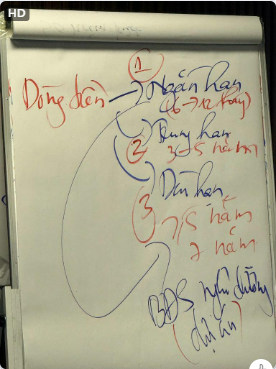 HD
1
Dòng tiền → Ngắn hạn
(6 → 12 tháng)
Trung hạn
2 3 - 5 năm
Dài hạn
3 > 5 năm
7 năm
BĐS nghỉ dưỡng
(dự án)